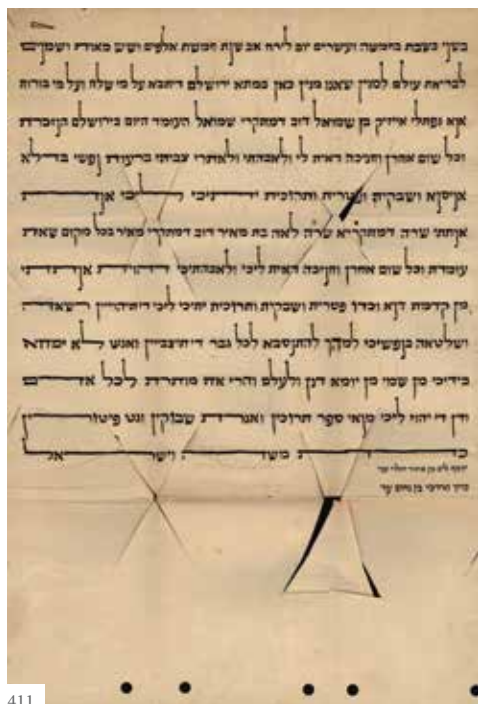 בשני בשבת בחמשה ועשרים יום לירח אב שנת חמשת אלפים ושש מאות ושמנים
לבריאת עולם למנין שאנו מנין כאן במתא ירושלם דיתבא על מי שלוח ועל מי בורות
אנא נפתלי אייזיק בן שמואל דוב דמתקרי שמואל העומד היום בירושלם הנזכרת
וכל שום אחרן וחניכה דאית לי ולאבהתי ולאתרי צביתי ברעות נפשי בדלא
אניסנא ושבקית ופטרית ותרוכית יתיכי ליכי אנת
אנתתי שרה דמתקריא שרה לאה בת מאיר דוב דמתקרי מאיר בכל מקום שאת
עומדת וכל שום אחרן וחניכה דאית ליכי ולאבהתיכי דהוית אנתתי
מן קדמת דנא וכדו פטרית ושבקית ותרוכית יתיכי ליכי דיתיהוייין רשאה
ושלטאה בנפשיכי למהך להתנסבא לכל גבר דיתיצבייין ואנש לא ימחא
בידיכי מן שמי מן יומא דנן ולעלם והרי את מותרת לכל אדם
ודן די יהוי ליכי מנאי ספר תרוכין ואגרת שבוקין וגט פיטורין
כדת משה וישראל
יוסף ליב בן הלוי עד
ברוך מרדכי בן נחום עד
411